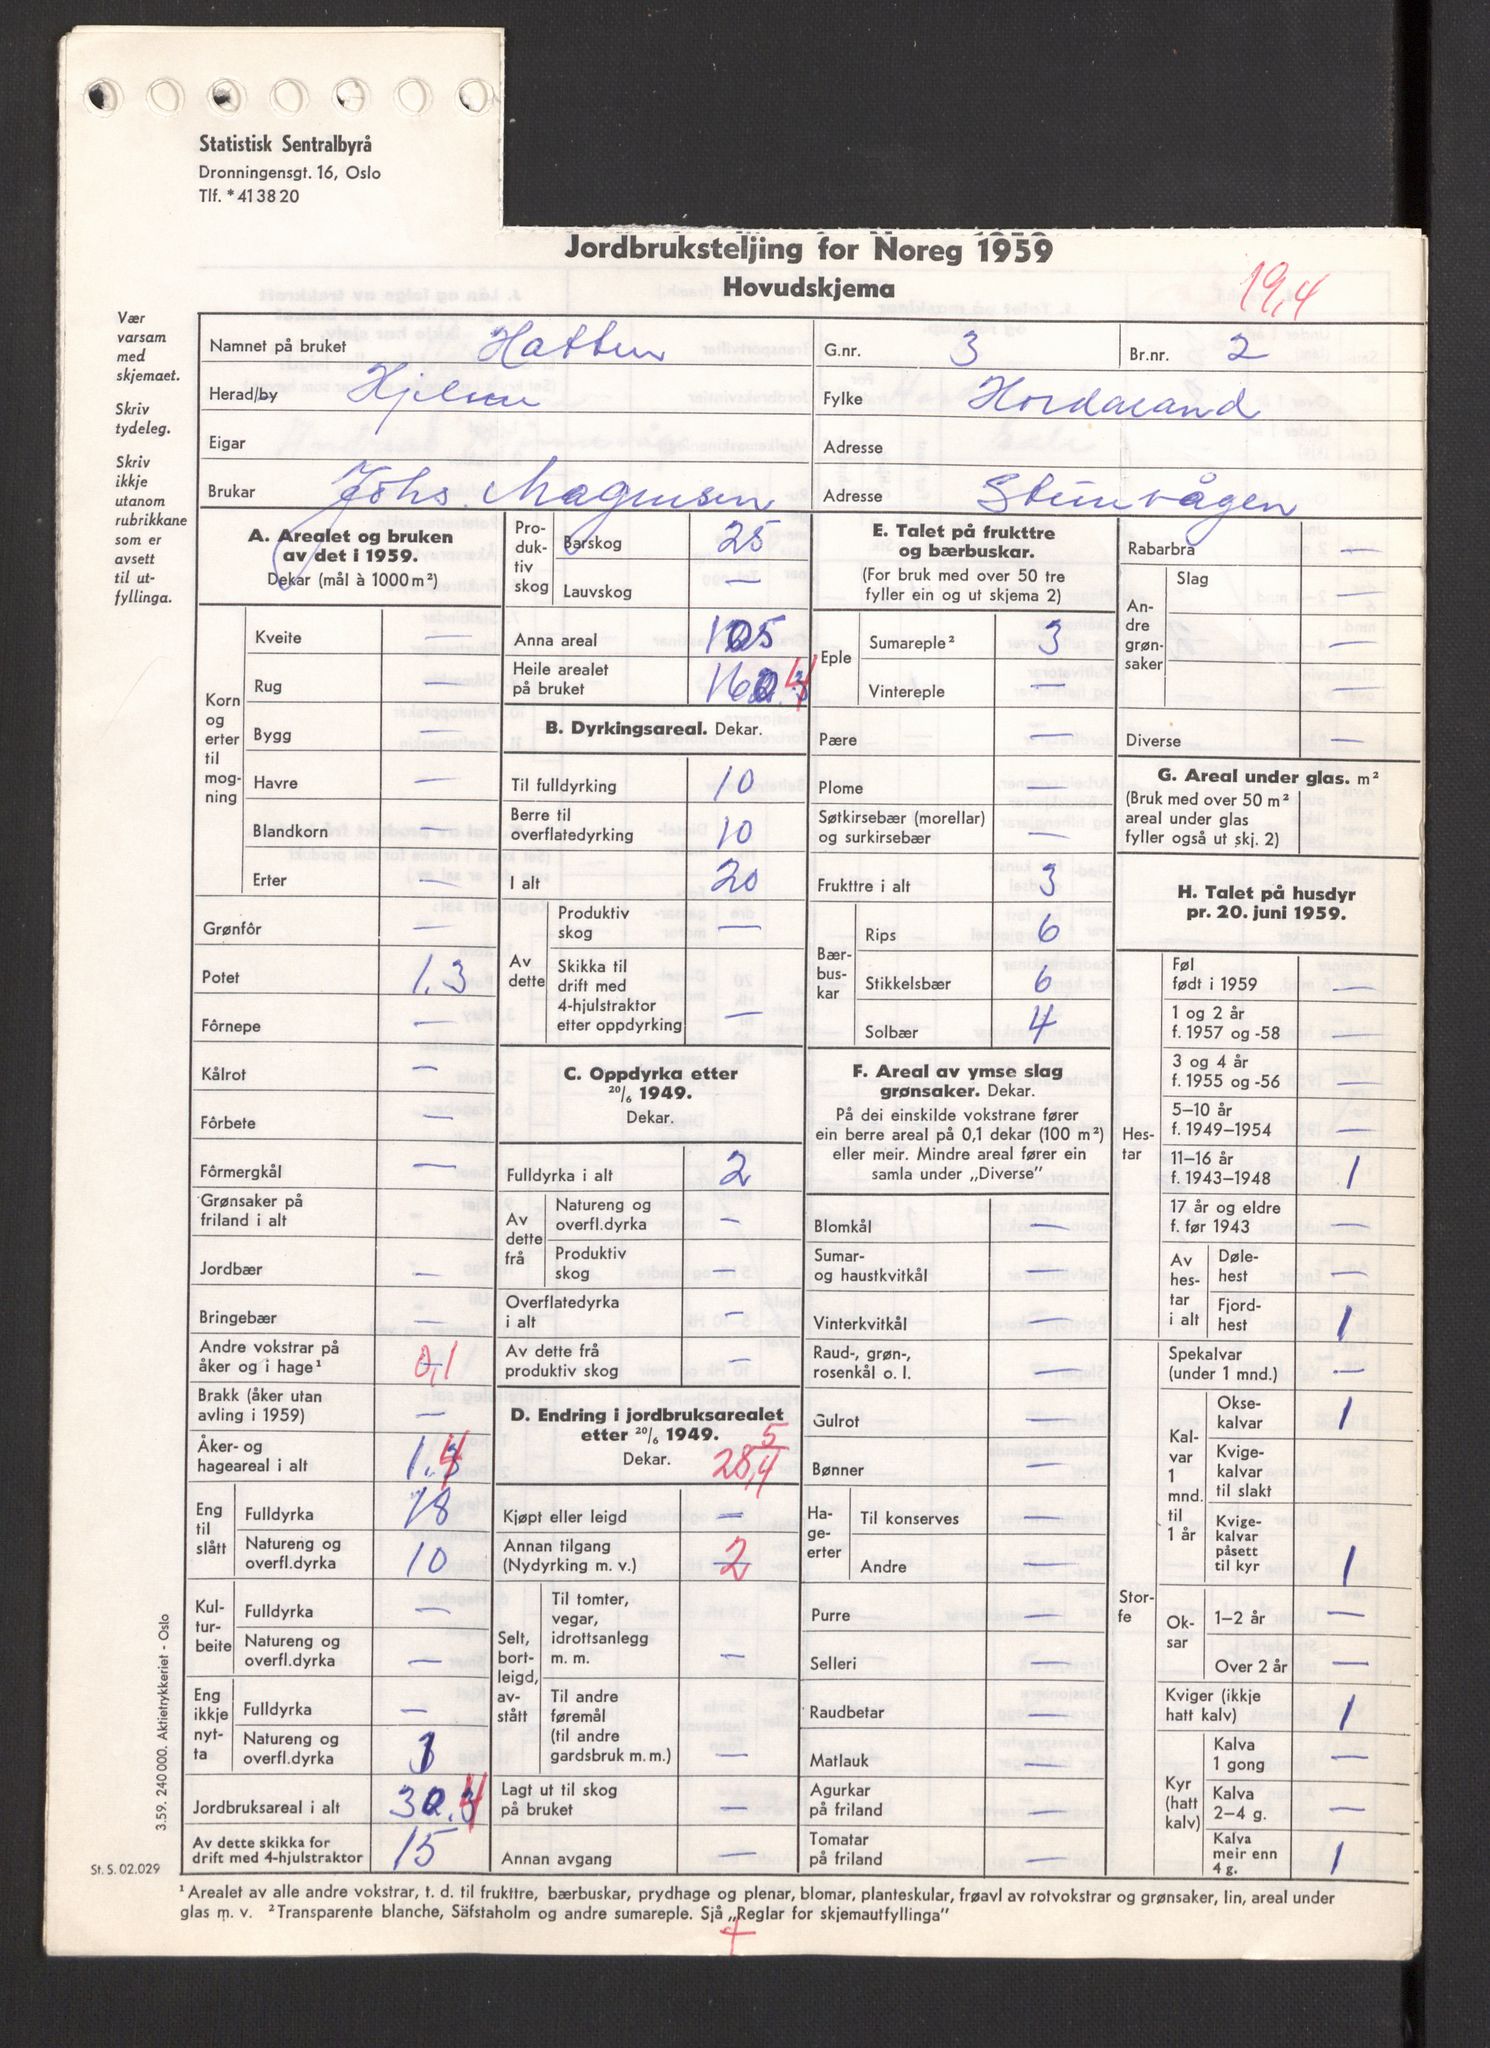 Statistisk Sentralbyrå
Dronningensgt. 16, Oslo
Tlf. *41 38 20
Jordbruksteljing for Noreg 1959
Hovudskjema
19,4
Vær varsam med skjemaet.
Skriv tydeleg.
Skriv ikkje utanom rubrikkane som er avsett til utfyllinga.
Namnet på bruket Hatten G.nr. 3 Br.nr. 2
Herad/by Hjelme Fylke Hordaland
Eigar Adresse
Brukar Johs. Magnusen Adresse Steinvågen
A. Arealet og bruken
av det i 1959.
Dekar (mål à 1000 m²)
Korn og erter til mogning
Kveite —
Rug —
Bygg —
Havre —
Blandkorn —
Erter —
Grønfôr —
Potet 1.3
Fôrnepe —
Kålrot —
Fôrbete —
Fôrmergkål —
Grønsaker på
friland i alt
Jordbær —
Bringebær —
Andre vokstrar på
åker og i hage¹ 0,1
Brakk (åker utan
avling i 1959) —
Åker- og
hageareal i alt 1.4
Eng til slått
Fulldyrka 18
Natureng og
overfl.dyrka 10
Kulturbeite
Fulldyrka —
Natureng og
overfl.dyrka —
Eng ikkje nytta
Fulldyrka —
Natureng og
overfl.dyrka 1
Jordbruksareal i alt 30.4
Av dette skikka for
drift med 4-hjulstraktor 15
Produktiv skog
Barskog 25
Lauvskog —
Anna areal 105
Heile arealet
på bruket 160.4
B. Dyrkingsareal. Dekar.
Til fulldyrking 10
Berre til
overflatedyrking 10
I alt 20
Av dette
Produktiv
skog —
Skikka til
drift med
4-hjulstraktor
etter oppdyrking —
C. Oppdyrka etter
20/6 1949.
Dekar.
Fulldyrka i alt 2
Av dette frå
Natureng og
overfl.dyrka —
Produktiv
skog —
Overflatedyrka
i alt —
Av dette frå
produktiv skog —
D. Endring i jordbruksarealet
etter 20/6 1949.
Dekar. 28,4 5
Kjøpt eller leigd —
Annan tilgang
(Nydyrking m. v.) 2
Selt, bortleigd, avstått
Til tomter,
vegar,
idrottsanlegg
m. m. —
Til andre
føremål
(til andre
gardsbruk m. m.) —
Lagt ut til skog
på bruket —
Annan avgang —
E. Talet på frukttre
og bærbuskar.
(For bruk med over 50 tre
fyller ein og ut skjema 2)
Eple
Sumareple² 3
Vintereple —
Pære —
Plome —
Søtkirsebær (morellar)
og surkirsebær —
Frukttre i alt 3
Bærbuskar
Rips 6
Stikkelsbær 6
Solbær 4
F. Areal av ymse slag
grønsaker. Dekar.
På dei einskilde vokstrane fører
ein berre areal på 0,1 dekar (100 m²)
eller meir. Mindre areal fører ein
samla under „Diverse”
Blomkål —
Sumar-
og haustkvitkål —
Vinterkvitkål —
Raud-, grøn-,
rosenkål o. l. —
Gulrot —
Bønner —
Hageerter
Til konserves —
Andre —
Purre —
Selleri —
Raudbetar —
Matlauk —
Agurkar
på friland —
Tomatar
på friland —
Rabarbra —
Andre grønsaker
Slag —
—
—
Diverse —
G. Areal under glas. m²
(Bruk med over 50 m²
areal under glas
fyller også ut skj. 2)
H. Talet på husdyr
pr. 20. juni 1959.
Hestar
Føl
født i 1959 —
1 og 2 år
f. 1957 og -58 —
3 og 4 år
f. 1955 og -56 —
5–10 år
f. 1949–1954 —
11–16 år
f. 1943–1948 1
17 år og eldre
f. før 1943 —
Av hestar i alt
Dølehest —
Fjordhest 1
Storfe
Spekalvar
(under 1 mnd.) —
Kalvar 1 mnd. til 1 år
Oksekalvar 1
Kvigekalvar
til slakt —
Kvigekalvar
påsett
til kyr 1
Oksar
1–2 år —
Over 2 år —
Kviger (ikkje
hatt kalv) 1
Kyr (hatt kalv)
Kalva
1 gong —
Kalva
2–4 g. —
Kalva
meir enn
4 g. 1
3.59. 240 000. Aktietrykkeriet - Oslo
St. S. 02.029
¹ Arealet av alle andre vokstrar, t. d. til frukttre, bærbuskar, prydhage og plenar, blomar, planteskular, frøavl av rotvokstrar og grønsaker, lin, areal under
glas m. v. ² Transparente blanche, Säfstaholm og andre sumareple. Sjå „Reglar for skjemautfyllinga”